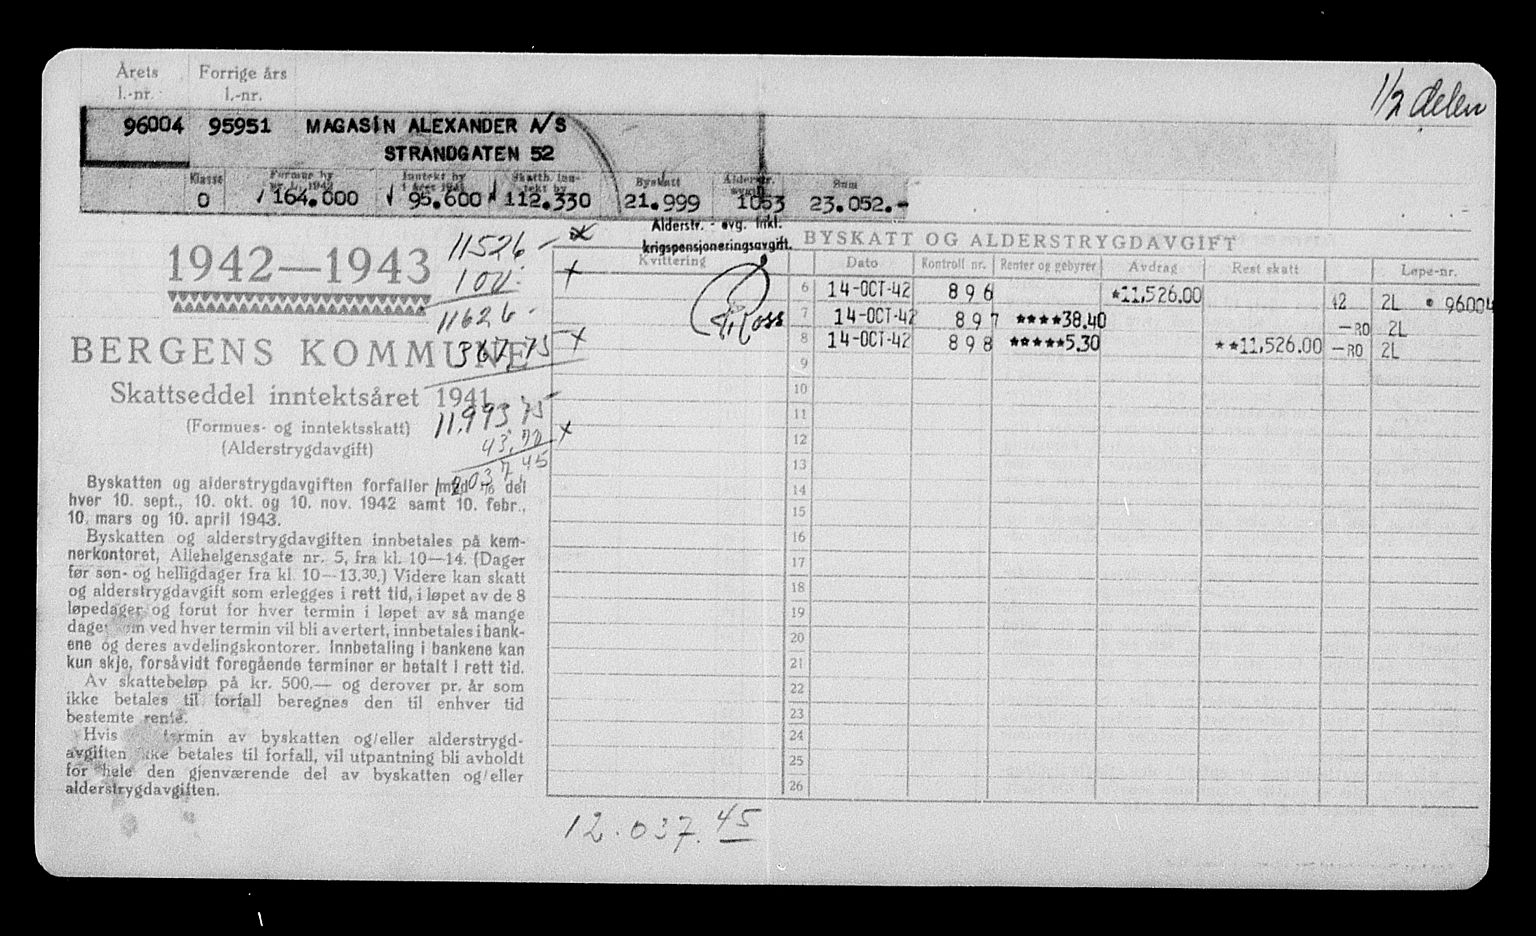 ½ delen
Årets Forrige års
l.-nr. l.-nr.
96004 95951 MAGASIN ALEXANDER A/S
STRANDGATEN 52
Klasse Formue by Inntekt by Skattb. inn- Byskatt Alderstr. Sum
0 164.000 95.600 112.330 21.999 1053 23.052.-
Alderstr. - avg. inkl.
krigspensjoneringsavgift.
BYSKATT OG ALDERSTRYGDAVGIFT
Kvittering Dato Kontroll nr. Renter og gebyrer Avdrag Rest skatt Løpe-nr.
6 14-OCT-42 896 *11,526.00 42 2L 96004
7 14-OCT-42 897 ****38.40 —RO 2L
8 14-OCT-42 898 *****5.30 **11,526.00 —RO 2L
9
10
11
12
13
14
15
16
17
18
19
20
21
22
23
24
25
26
1942—1943
BERGENS KOMMUNE
Skattseddel inntektsåret 1941
(Formues- og inntektsskatt)
(Alderstrygdavgift)
11526 –
100.
11626 -
367,75
11.993,75
Byskatten og alderstrygdavgiften forfaller med 1/6 del
hver 10. sept., 10. okt. og 10. nov. 1942 samt 10. febr.,
10. mars og 10. april 1943.
Byskatten og alderstrygdavgiften innbetales på kem-
nerkontoret, Allehelgensgate nr. 5, fra kl. 10—14. (Dager
før søn- og helligdager fra kl. 10—13.30.) Videre kan skatt
og alderstrygdavgift som erlegges i rett tid, i løpet av de 8
løpedager og forut for hver termin i løpet av så mange
dager som ved hver termin vil bli avertert, innbetales i bank-
ene og deres avdelingskontorer. Innbetaling i bankene kan
kun skje, forsåvidt foregående terminer er betalt i rett tid.
Av skattebeløp på kr. 500.— og derover pr. år som
ikke betales til forfall beregnes den til enhver tid
bestemte rente.
Hvis termin av byskatten og/eller alderstrygd-
avgiften ikke betales til forfall, vil utpantning bli avholdt
for hele den gjenværende del av byskatten og/eller
alderstrygdavgiften.
12.037.45